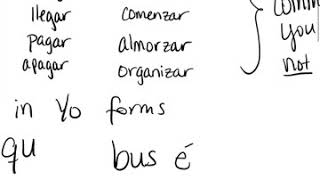 llegar comenzar
pagar almorzar you
apagar organizar not
in yo forms
qu bus é